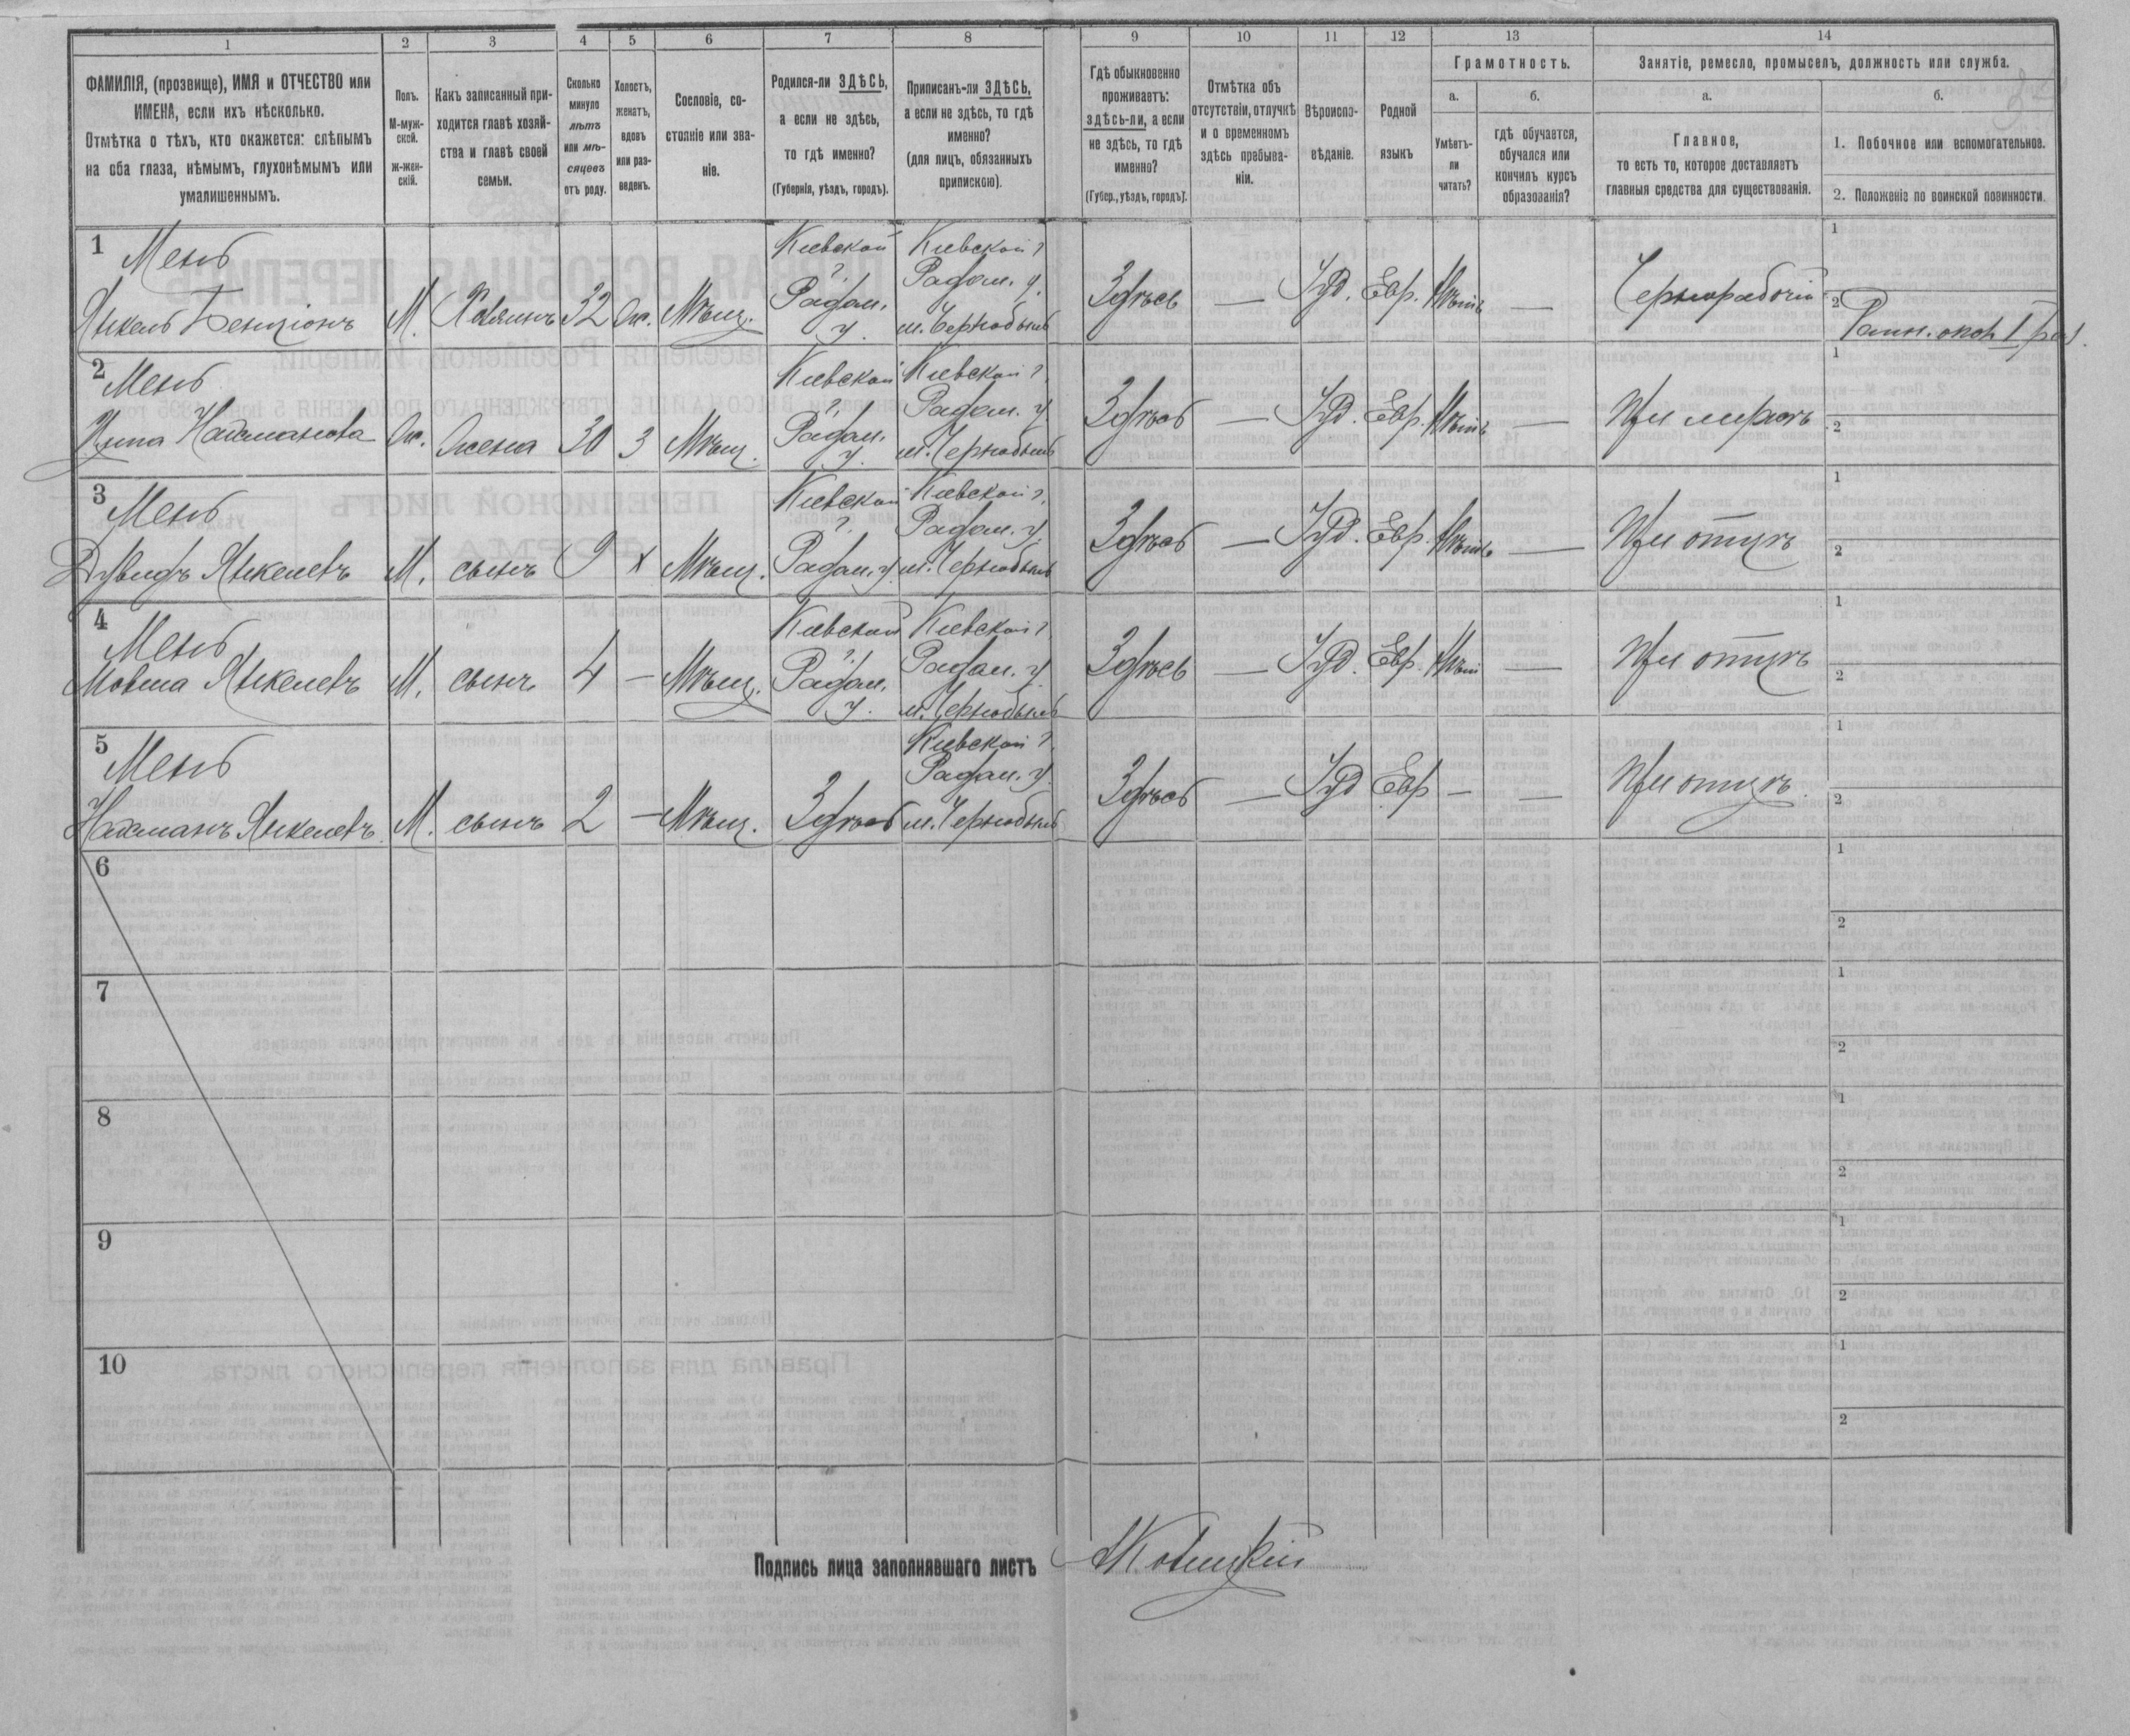 1 2 3 4 5 6 7 8 9 10 11 12 13 14
ФАМИЛІЯ, (прозвище), ИМЯ и ОТЧЕСТВО или
ИМЕНА, если ихъ нѣсколько.
Отмѣтка о тѣхъ, кто окажется: слѣпымъ
на оба глаза, нѣмымъ, глухонѣмымъ или
умалишеннымъ.
Полъ.
М-муж-
ской.
ж-жен-
скій.
Какъ записанный при-
ходится главѣ хозяй-
ства и главѣ своей
семьи.
Сколько
минуло
лѣтъ
или мѣ-
сяцевъ
отъ роду.
Холостъ,
женатъ,
вдовъ
или раз-
веденъ.
Сословіе, со-
стояніе или зва-
ніе.
Родился-ли ЗДѢСЬ,
а если не здѣсь,
то гдѣ именно?
(Губернія, уѣздъ, городъ).
Приписанъ-ли ЗДѢСЬ,
а если не здѣсь, то гдѣ
именно?
(для лицъ, обязанныхъ
припискою).
Гдѣ обыкновенно
проживаетъ:
здѣсь-ли, а если
не здѣсь, то гдѣ
именно?
(Губер., уѣздъ, городъ).
Отмѣтка объ
отсутствіи, отлучкѣ
и о временномъ
здѣсь пребыва-
ніи.
Вѣроиспо-
вѣданіе.
Родной
языкъ
Грамотность.
а.
Умѣетъ-
ли
читать?
б.
гдѣ обучается,
обучался или
кончилъ курсъ
образованія?
Занятіе, ремесло, промыселъ, должность или служба.
а.
Главное,
то есть то, которое доставляетъ
главныя средства для существованія.
б.
1. Побочное или вспомогательное.
2. Положеніе по воинской повинности.
1
Мень
Янкель Бенціонъ
М.
Хозяинъ
32
Мѣщ.
Кіевской
г.
Радом.
у.
Кіевской г.
Радом. у.
м. Чернобыль
Здѣсь
—
Іуд.
Евр.
—
Чернорабочій
1
2
2
Мень
Нахманова
Ж.
Жена
30
З
Мѣщ.
Кіевской
г.
Радом.
у.
Кіевской г.
Радом. у.
м. Чернобыль
Здѣсь
—
Іуд.
Евр.
—
При мужѣ
1
2
3
Мень
Дувидъ Янкелевъ
М.
сынъ
9
х
Мѣщ.
Кіевской
г.
Радом. у.
Кіевской г.
Радом. у.
м. Чернобыль
Здѣсь
—
Іуд.
Евр.
—
При отцѣ
1
2
4
Мень
Мовша Янкелевъ
М.
сынъ
4
—
Мѣщ.
Кіевской
г.
Радом.
у.
Кіевской г.
Радом. у.
м. Чернобыль
Здѣсь
—
Іуд.
Евр.
—
При отцѣ
1
2
5
Мень
Нахманъ Янкелевъ
М.
сынъ
2
—
Мѣщ.
Здѣсь
Кіевской г.
Радом. у.
м. Чернобыль
Здѣсь
—
Іуд
Евр
—
—
При отцѣ.
1
2
6
1
2
7
1
2
8
1
2
9
1
2
10
1
2
Подпись лица заполнявшаго листъ